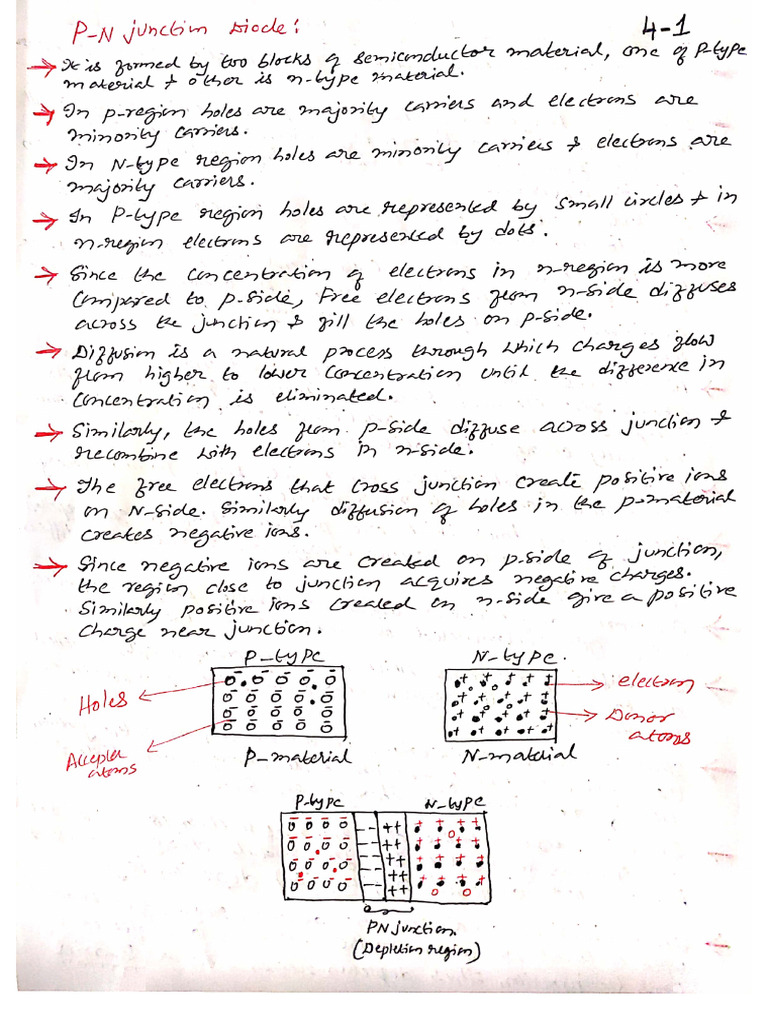 P-N junction Diode:
4-1
→ It is formed by two blocks of semiconductor material, one of P-type
material & other is n-type material.
→ In p-region holes are majority carriers and electrons are
minority carriers.
→ In N-type region holes are minority carriers & electrons are
majority carriers.
→ In P-type region holes are represented by small circles & in
n-region electrons are represented by dots.
→ Since the concentration of electrons in n-region is more
compared to p-side, Free electrons from n-side diffuses
across the junction & fill the holes on p-side.
→ Diffusion is a natural process through which charges flow
from higher to lower concentration until the difference in
concentration is eliminated.
→ Similarly, the holes from p-side diffuse across junction &
recombine with electrons in n-side.
→ The free electrons that cross junction create positive ions
on N-side. Similarly diffusion of holes in the p-material
creates negative ions.
→ Since negative ions are created on p-side of junction,
the region close to junction acquires negative charges.
Similarly positive ions created on n-side give a positive
charge near junction.
P-type
N-type.
Holes
electron
Accepter
atoms
Donor
atoms
P-material
N-material
P-type
N-type
PN junction
(Depletion region)